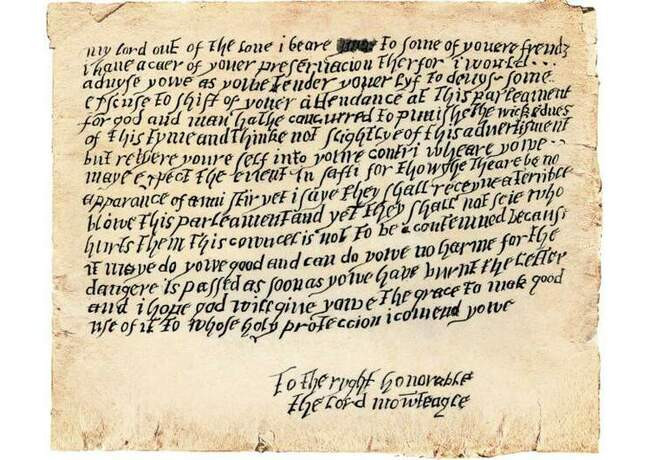 my lord out of the love i beare to some of youere frends
i have a caer of youer preservacion therfor i would
advyse yowe as yowe tender youer lyf to devys some
exscuse to shift of youer attendance at this parleament
for god and man hathe concurred to punishe the wickednes
of this tyme and thinke not slightlye of this advertisment
but retyere youre self into youre contri wheare yowe
maye expect the event in safti for thowghe theare be no
apparance of anni stir yet i saye they shall receyve a terrible
blowe this parleament and yet they shall not seie who
hurts them this cowncel is not to be contemned because
it maye do yowe good and can do yowe no harme for the
dangere is passed as soon as yowe have burnt the letter
and i hope god will give yowe the grace to mak good
use of it to whose holy proteccion i comend yowe
To the ryght honorable
the lord mowteagle